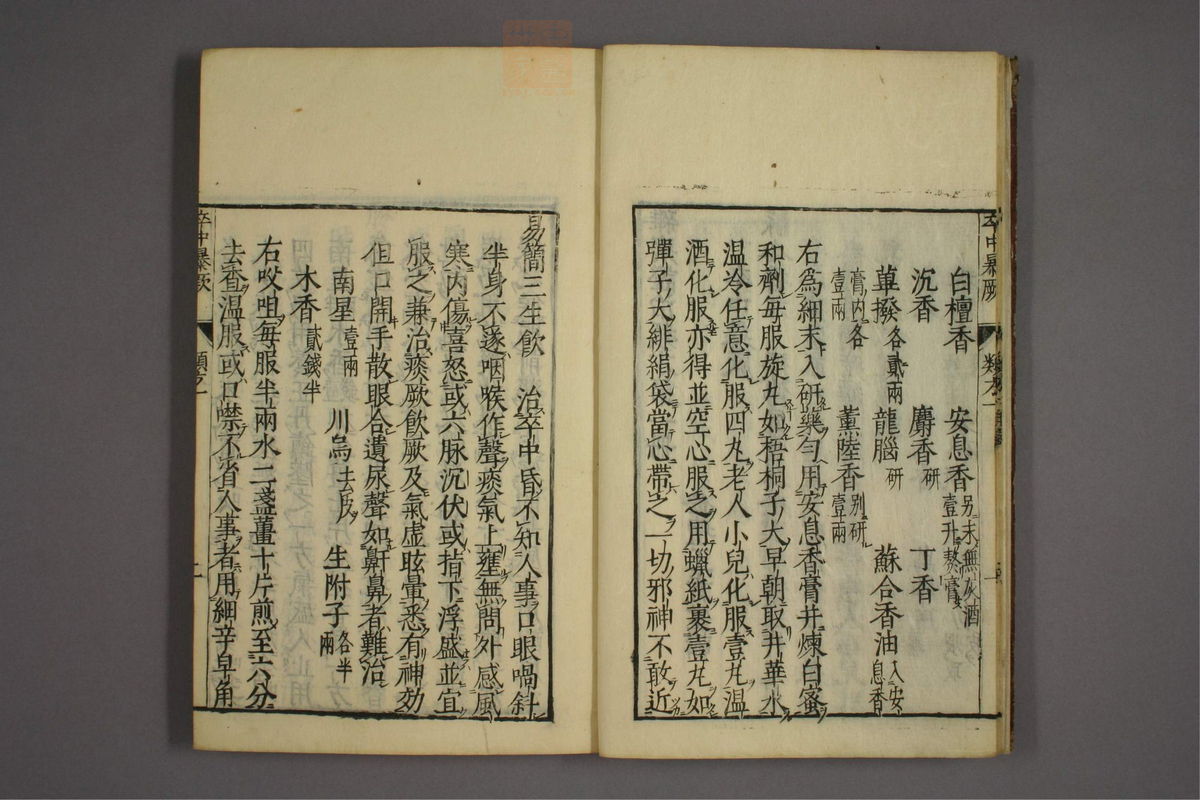 卒中暴厥
類之一
白檀香 安息香 别末無灰酒壹升熬膏
沉香 麝香 研 丁香
蓽撥 各貳兩 龍腦 研 蘇合香油 入安息香
膏內各壹兩 薰陸香 别研壹兩
右為細末入研藥勻用安息香膏并煉白蜜
和劑每服旋丸如梧桐子大早朝取井華水
温冷任意化服四丸老人小兒化服壹丸温
酒化服亦得並空心服之用蠟紙裹壹丸如
彈子大緋絹袋當心帶之一切邪神不敢近
易簡三生飲 治卒中昏不知人事口眼喎斜
半身不遂咽喉作聲痰氣上壅無問外感風
寒内傷喜怒或六脉沉伏或指下浮盛並宜
服之兼治痰厥飲厥及氣虛眩暈悉有神効
但口開手散眼合遺尿聲如鼾鼻者難治
南星 壹兩 川烏 去皮 生附子 各半兩
木香 貳錢半
右㕮咀每服半兩水二盞薑十片煎至六分
去査温服或口噤不省人事者用細辛皁角
卒中暴厥
類之一
二